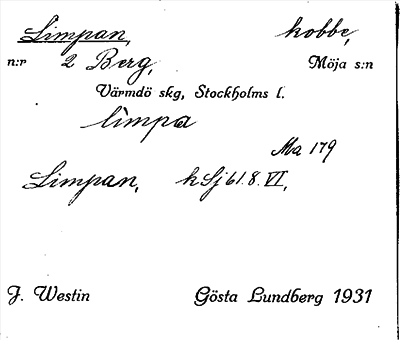 Limpan, kobbe,
n:r 2 Berg, Möja s:n
Värmdö skg, Stockholms l.
lìmpa
Ma 179
Limpan, kSj 61.8.VI,
J. Westin Gösta Lundberg 1931